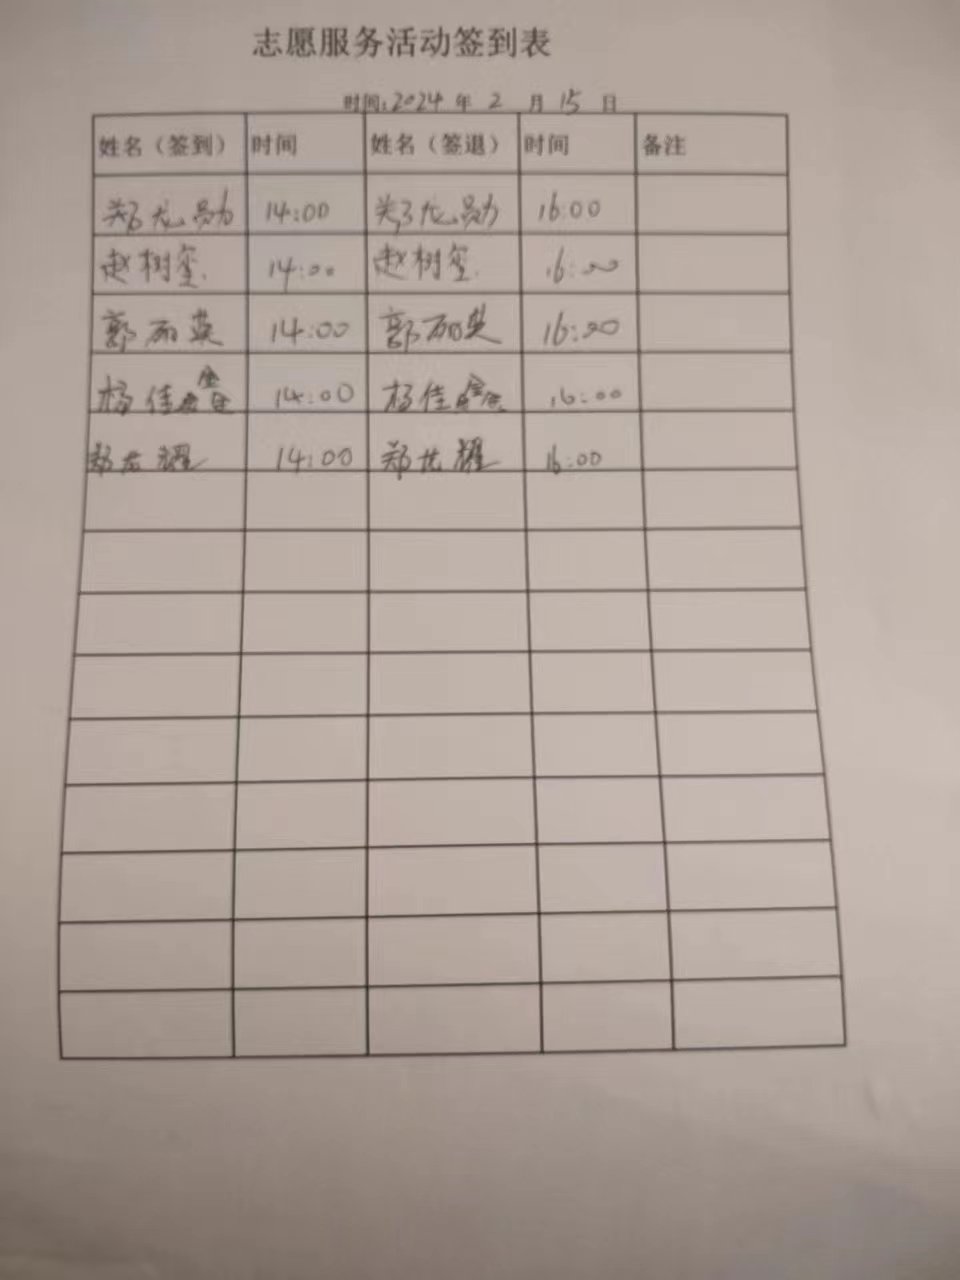 志愿服务活动签到表
时间:2024 年 2 月 15 日
姓名（签到） 时间 姓名（签退） 时间 备注
郑龙勋 14:00 郑龙勋 16:00
赵树玺 14:00 赵树玺 16:00
郭丽英 14:00 郭丽英 16:00
杨佳鑫 14:00 杨佳鑫 16:00
郑龙耀 14:00 郑龙耀 16:00